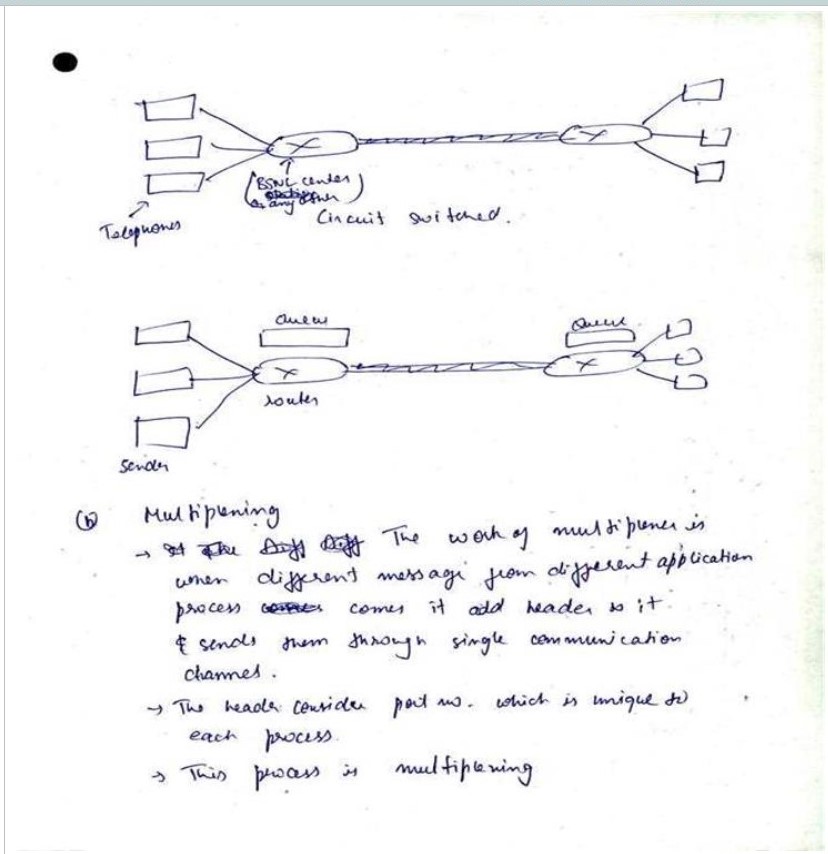 (BSNL center
or any other)
Telephones
Circuit switched.
Queue
Queue
router
Sender
(b) Multiplexing
→ The work of multiplexer is
when different message from different application
process comes it add header to it
& sends them through single communication
channel.
→ The header consider port no. which is unique to
each process.
→ This process is multiplexing